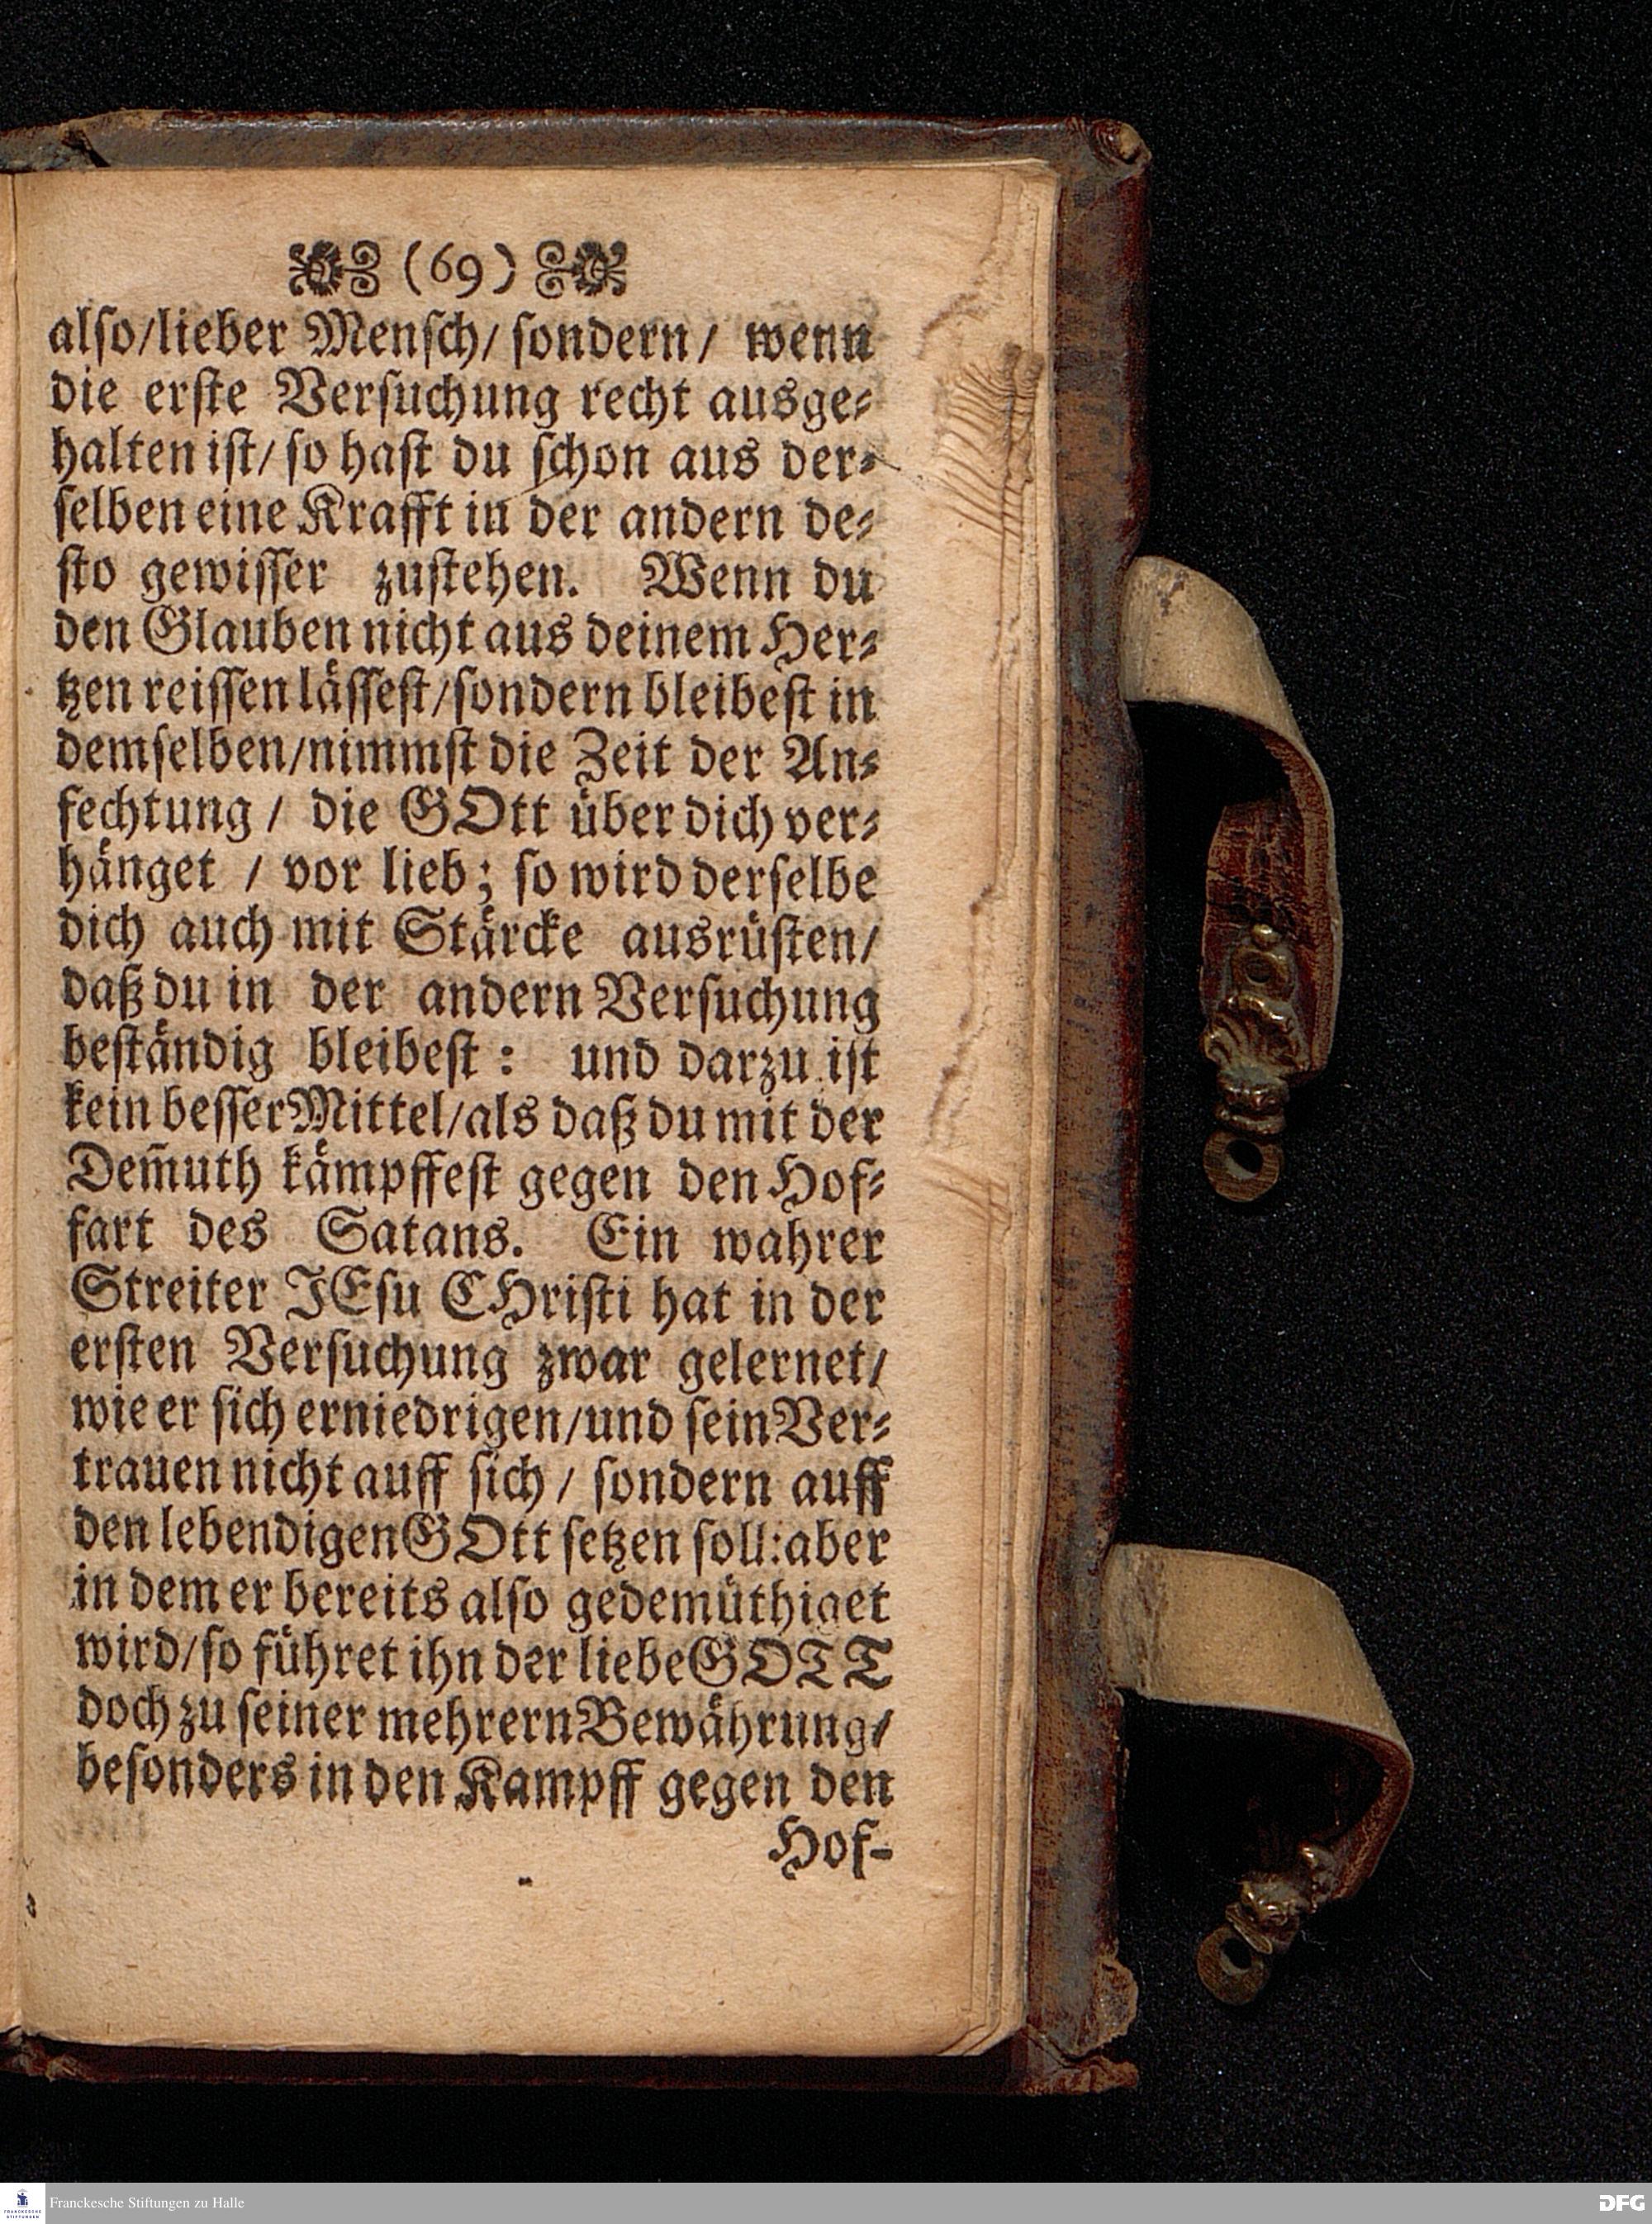 (69)
also/lieber Mensch/ sondern/ wenn
die erste Versuchung recht ausge-
halten ist/ so hast du schon aus der-
selben eine Krafft in der andern de-
sto gewisser zustehen. Wenn du
den Glauben nicht aus deinem Her-
tzen reissen lässest/sondern bleibest in
demselben/nimmst die Zeit der An-
fechtung / die GOtt über dich ver-
hänget / vor lieb; so wird derselbe
dich auch mit Stärcke ausrüsten/
daß du in der andern Versuchung
beständig bleibest: und darzu ist
kein besser Mittel/als daß du mit der
Dem̄uth kämpffest gegen den Hof-
fart des Satans. Ein wahrer
Streiter JEsu CHristi hat in der
ersten Versuchung zwar gelernet/
wie er sich erniedrigen/und sein Ver-
trauen nicht auff sich / sondern auff
den lebendigen GOtt setzen soll: aber
in dem er bereits also gedemüthiget
wird/so führet ihn der liebe GOTT
doch zu seiner mehrern Bewährung/
besonders in den Kampff gegen den
Hof-
Franckesche Stiftungen zu Halle
DFG